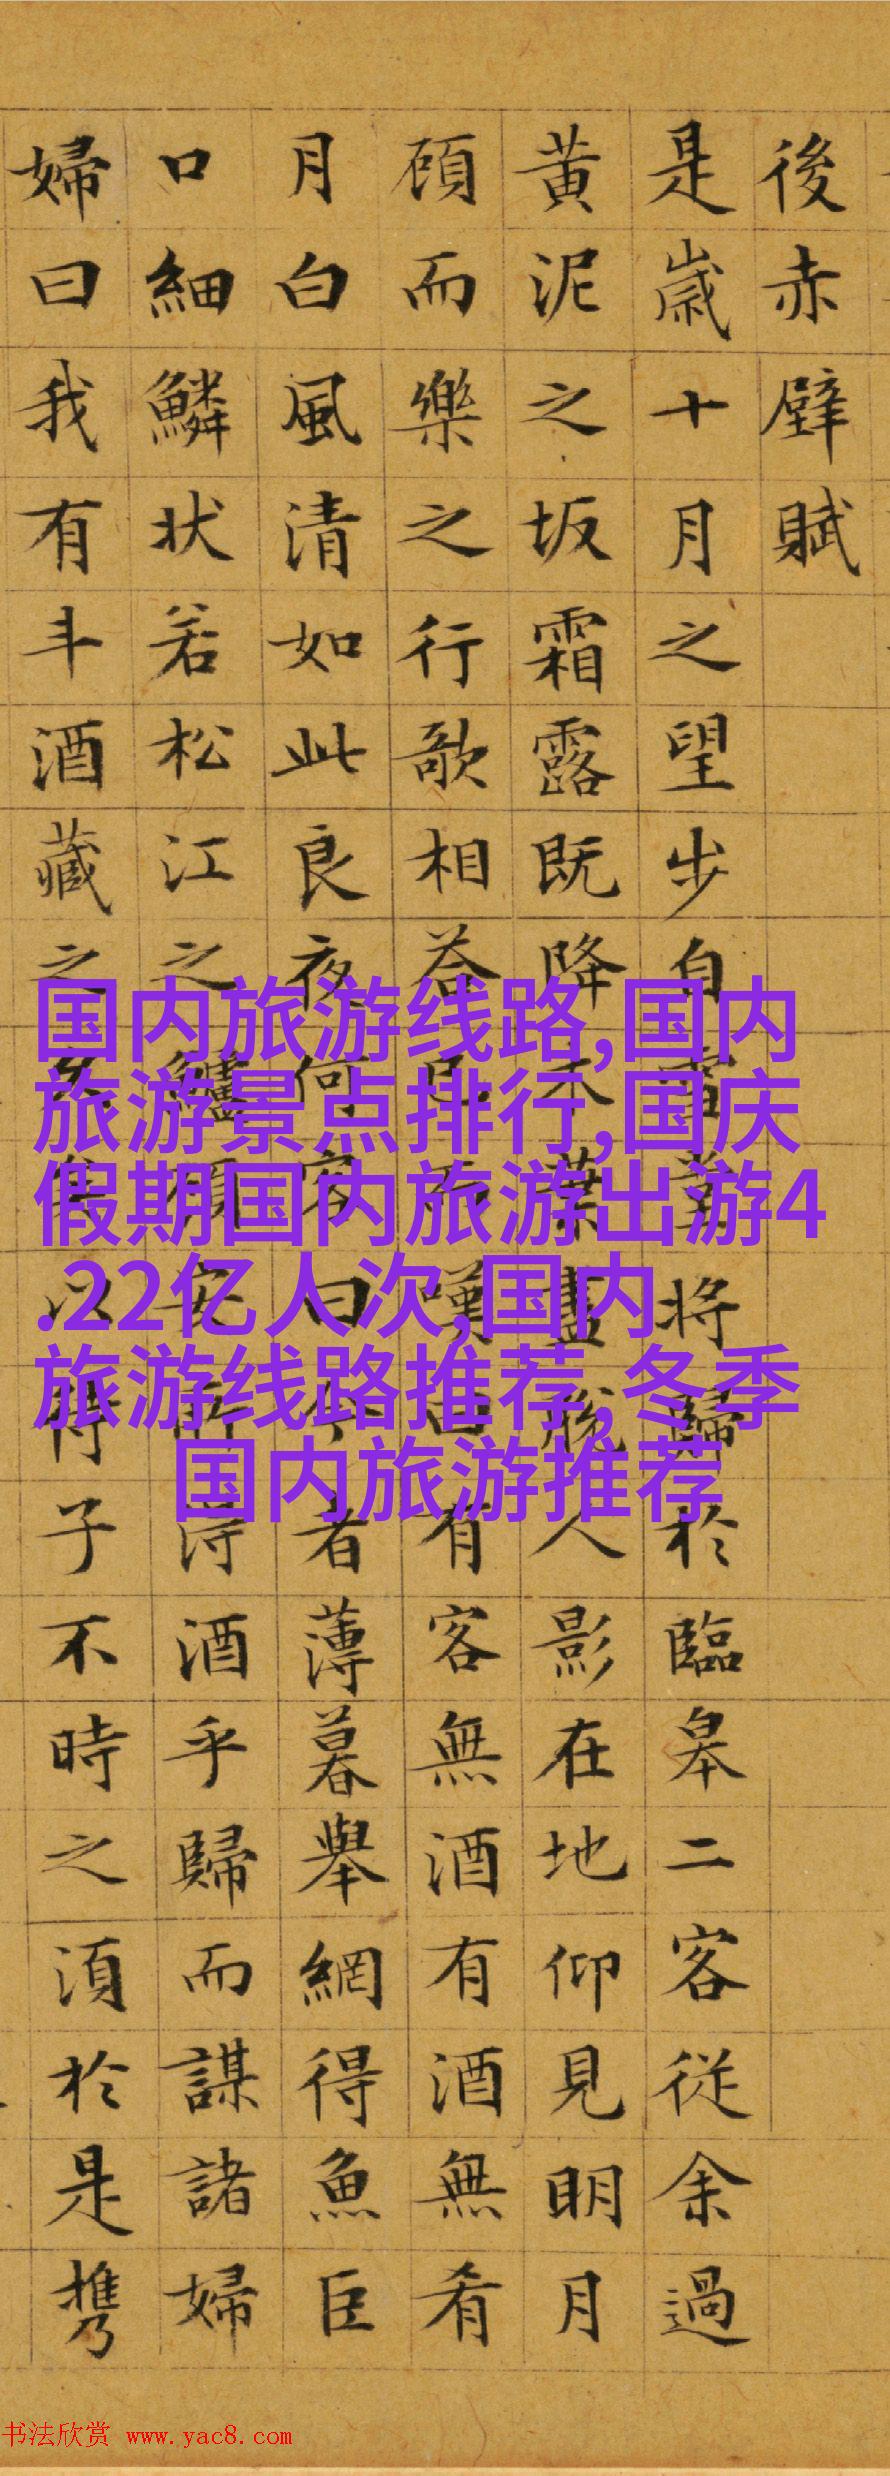 後赤壁賦
是歲十月之望步自雪堂将歸於臨皋二客從余過
黄泥之坂霜露既降木葉盡脫人影在地仰見明月
頋而樂之行歌相荅已而嘆曰有客無酒有酒無肴
月白風清如此良夜何客曰今者薄暮舉網得魚臣
口細鱗状若松江之鱸頋安所得酒乎歸而謀諸婦
婦曰我有斗酒藏之久矣以待子不時之須於是携
国内旅游线路,国内
旅游景点排行,国庆
假期国内旅游出游4
.22亿人次,国内
旅游线路推荐,冬季
国内旅游推荐
书法欣赏 www.yac8.com